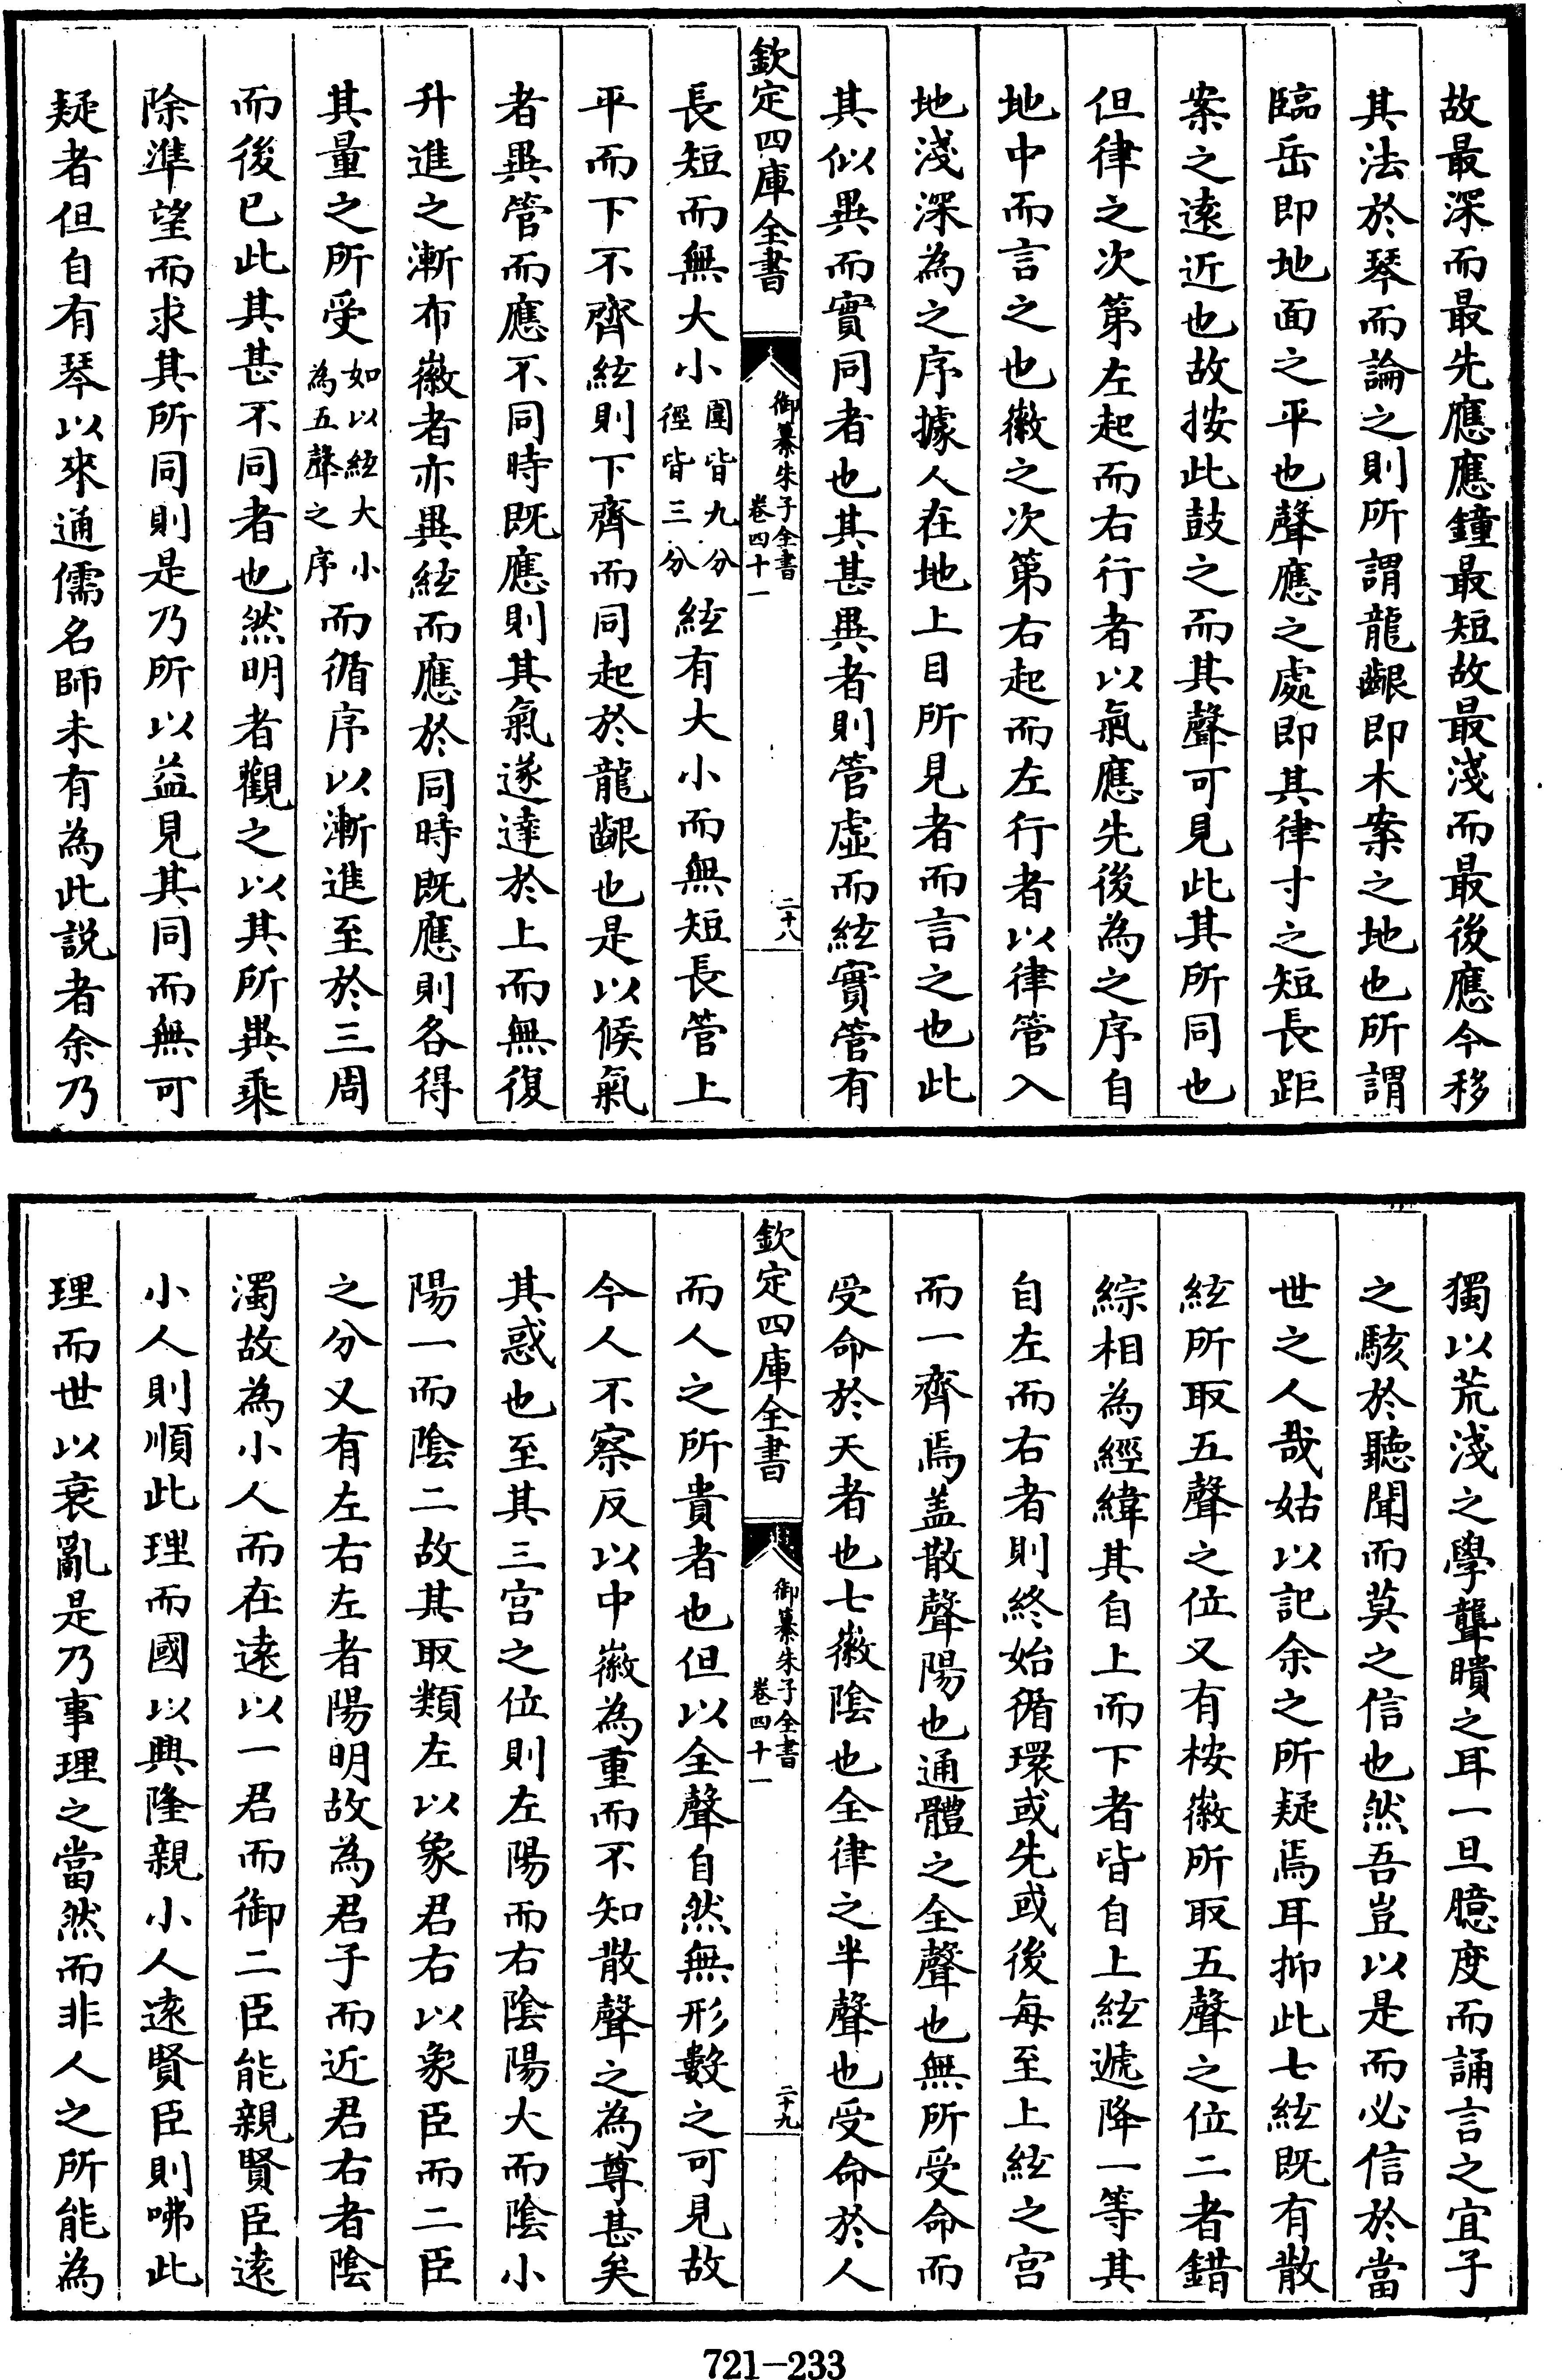 故最深而最先應應鐘最短故最淺而最後應今移
其法於琴而論之則所謂龍齦即木案之地也所謂
臨岳即地面之平也聲應之處即其律寸之短長距
案之遠近也故按此鼓之而其聲可見此其所同也
但律之次第左起而右行者以氣應先後為之序自
地中而言之也徽之次第右起而左行者以律管入
地淺深為之序據人在地上目所見者而言之也此
其似異而實同者也其甚異者則管虛而絃實管有
欽定四庫全書
御纂朱子全書
卷四十一
二十八
長短而無大小圍皆九分徑皆三分絃有大小而無短長管上
平而下不齊絃則下齊而同起於龍齦也是以候氣
者異管而應不同時既應則其氣遂達於上而無復
升進之漸布徽者亦異絃而應於同時既應則各得
其量之所受如以絃大小為五聲之序而循序以漸進至於三周
而後已此其甚不同者也然明者觀之以其所異乘
除準望而求其所同則是乃所以益見其同而無可
疑者但自有琴以來通儒名師未有為此説者余乃
獨以荒淺之學聾聵之耳一旦臆度而誦言之宜子
之駭於聽聞而莫之信也然吾豈以是而必信於當
世之人哉姑以記余之所疑焉耳抑此七絃既有散
絃所取五聲之位又有桉徽所取五聲之位二者錯
綜相為經緯其自上而下者皆自上絃遞降一等其
自左而右者則終始循環或先或後每至上絃之宫
而一齊焉盖散聲陽也通體之全聲也無所受命而
受命於天者也七徽陰也全律之半聲也受命於人
欽定四庫全書
御纂朱子全書
卷四十一
二十九
而人之所貴者也但以全聲自然無形數之可見故
今人不察反以中徽為重而不知散聲之為尊甚矣
其惑也至其三宫之位則左陽而右陰陽大而陰小
陽一而陰二故其取類左以象君右以象臣而二臣
之分又有左右左者陽明故為君子而近君右者陰
濁故為小人而在遠以一君而御二臣能親賢臣遠
小人則順此理而國以興隆親小人遠賢臣則咈此
理而世以衰亂是乃事理之當然而非人之所能為
721-233